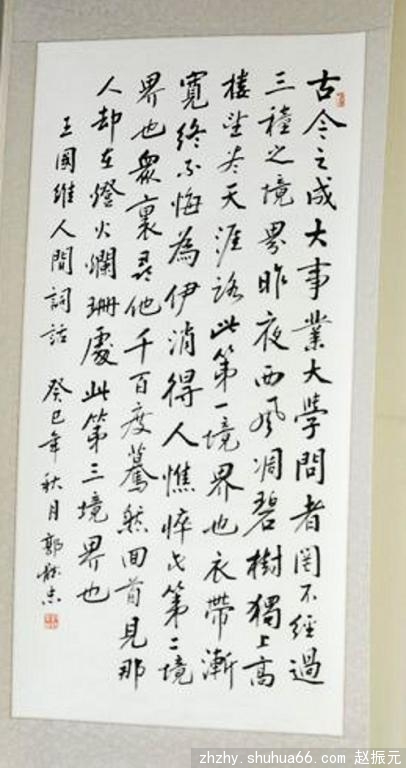 古今之成大事業大學問者罔不經過
三種之境界昨夜西風凋碧樹獨上高
樓望盡天涯路此第一境界也衣帶漸
寬終不悔為伊消得人憔悴此第二境
界也衆裏尋他千百度驀然回首見那
人却在燈火爛珊處此第三境界也
王國維人間詞話 癸巳年秋月郭
zhzhy.shuhua66.com 赵振元